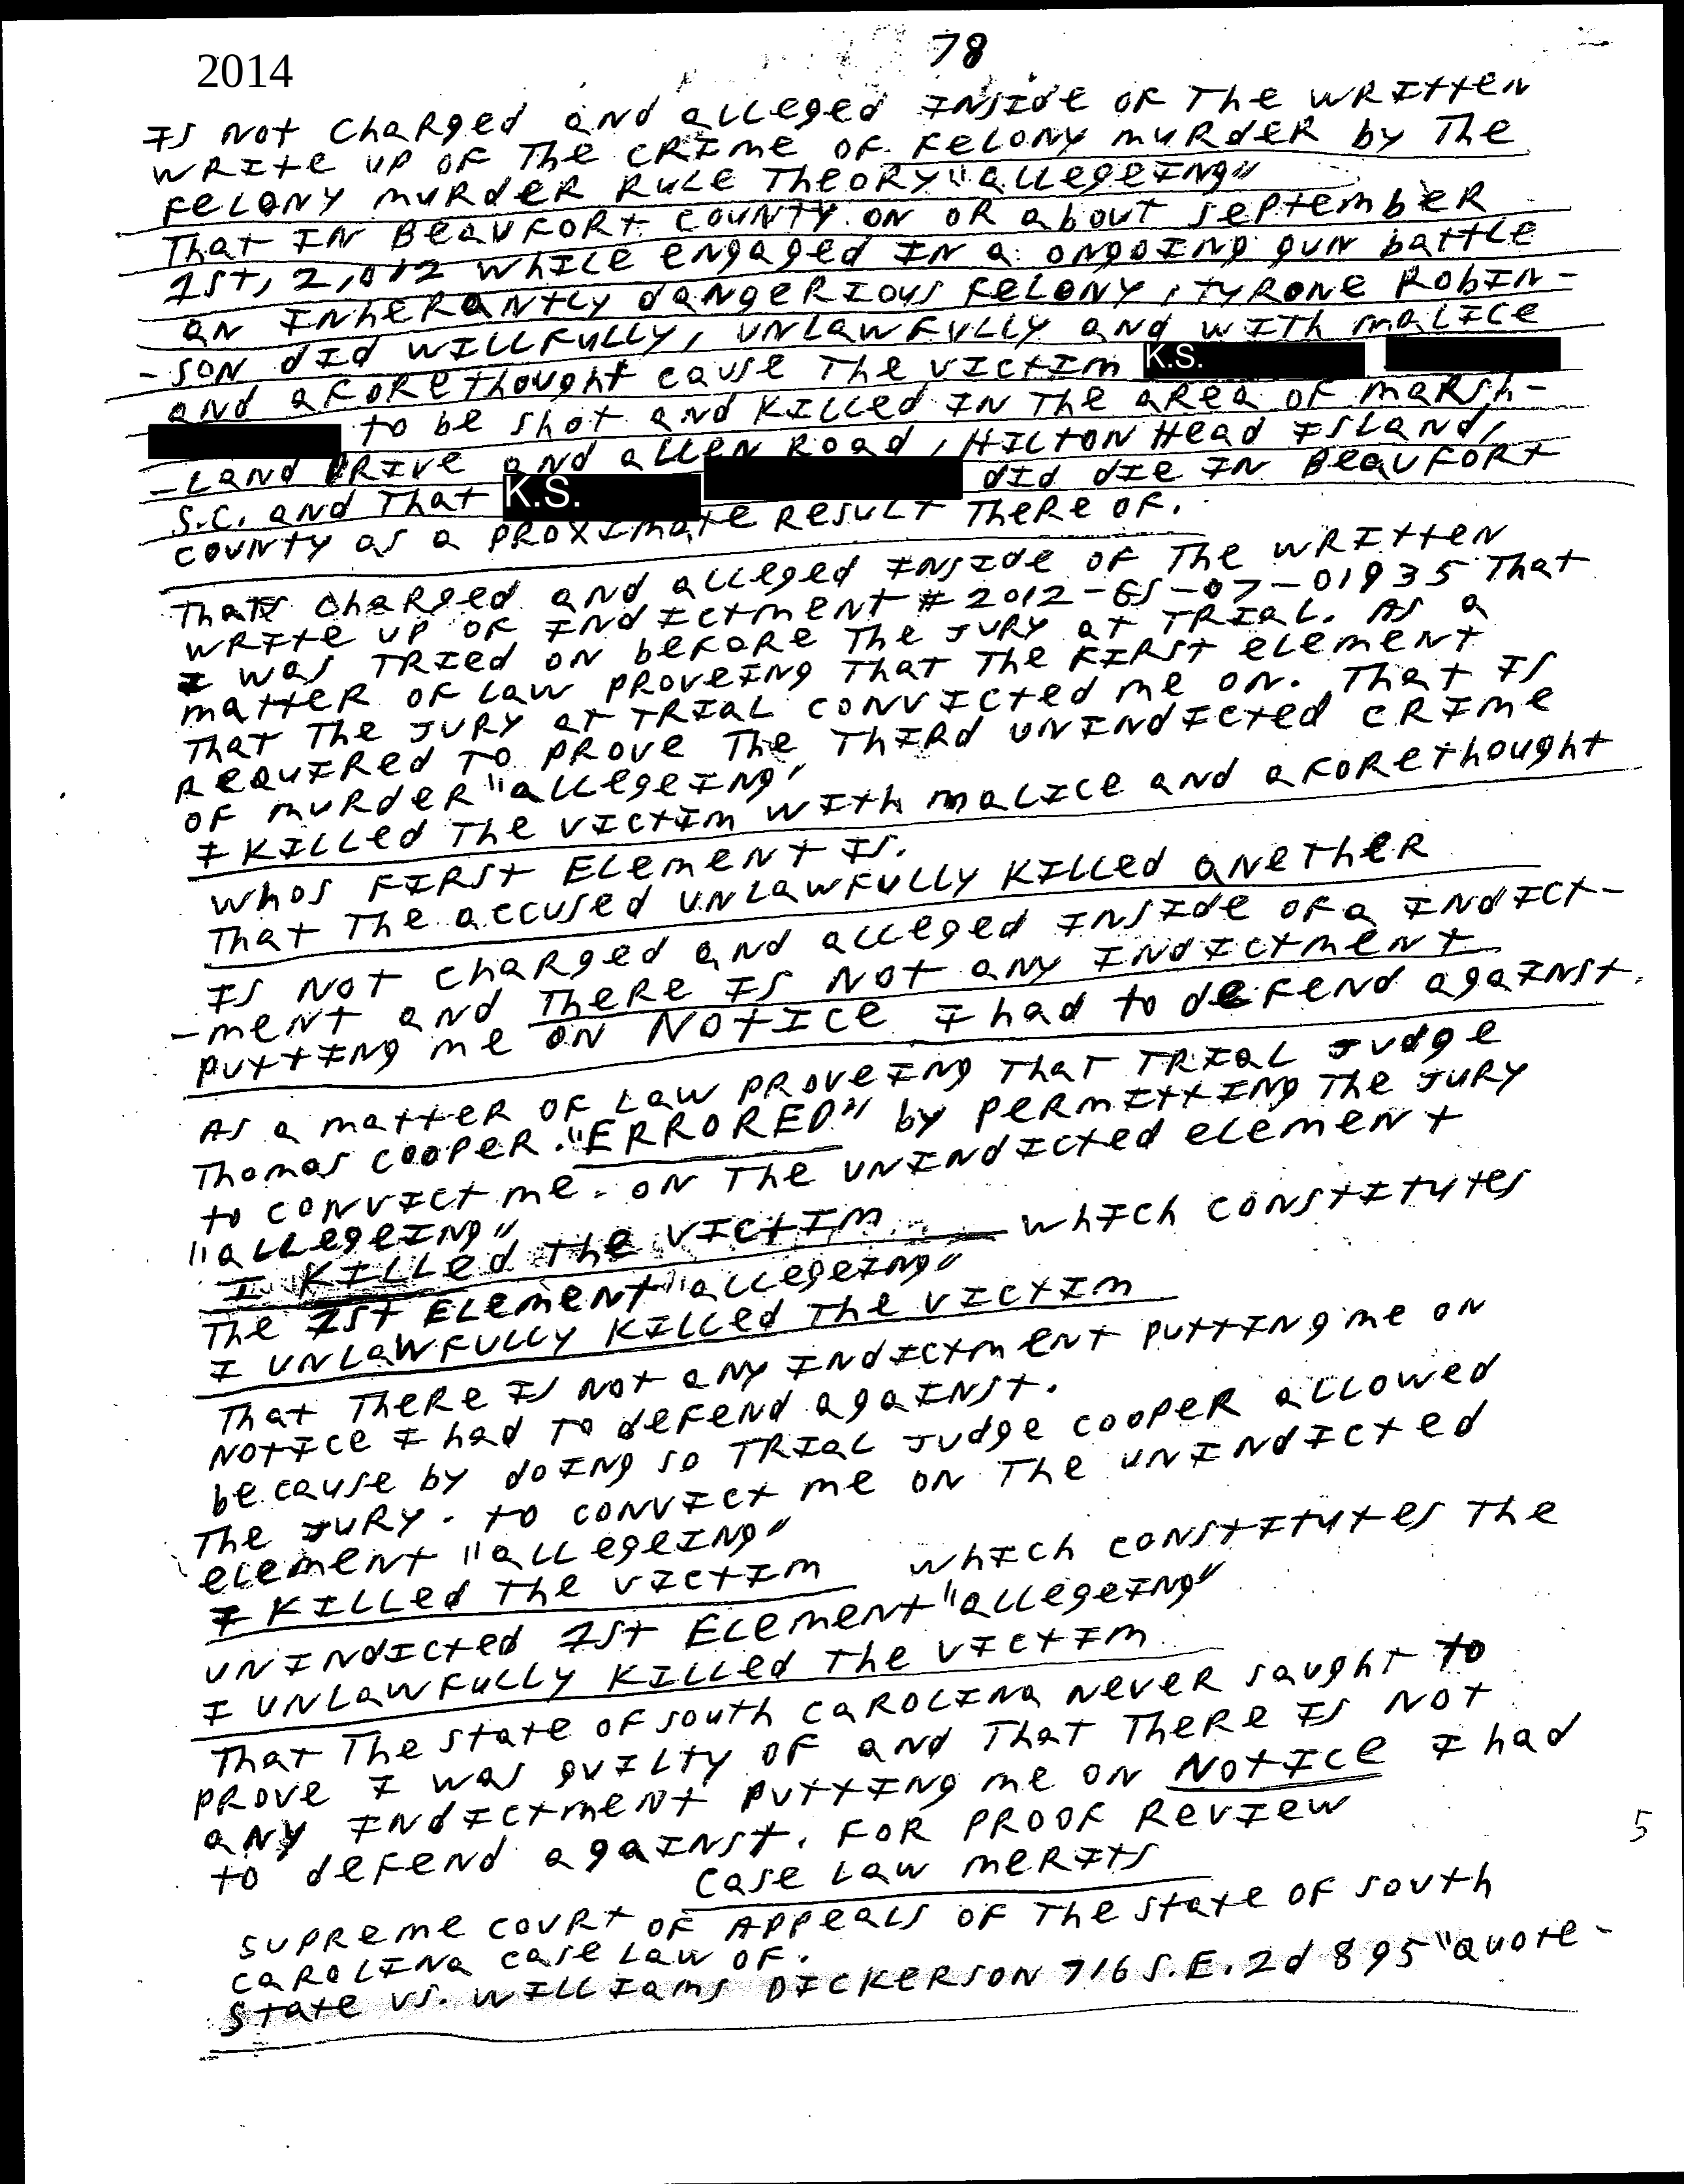 78
2014
Is Not Charged and alleged Inside of The Written
Write up of The Crime of Felony murder by The
Felony murder Rule Theory "allegeing"
That In Beaufort County on or about September
1st, 2,012 while engaged In a ongoing gun battle
an Inherantly dangerious Felony, Tyrone Robin-
-son did Willfully, unlawfully and with malice
and aforethought cause The victim K.S.
to be shot and Killed In The area of marsh-
-land Drive and allen Road, Hilton Head Island,
S.C. and That K.S. did die In Beaufort
County as a proximate Result There of.
Thats Charged and alleged Inside of The Written
Write up of Indictment # 2012-GS-07-01935 That
I was Tried on before The Jury at Trial. As a
matter of Law proveing That The First element
That The Jury at Trial Convicted me on. That Is
Required To prove The Third unindicted Crime
of murder "allegeing"
I Killed The victim with malice and aforethought
Whos First Element Is.
That The accused unlawfully Killed anether
Is Not Charged and alleged Inside of a Indict-
-ment and There Is Not any Indictment
putting me on Notice I had to defend against.
As a matter of Law proveing That Trial Judge
Thomas Cooper. "ERRORED" by permitting The Jury
to convict me. on The unindicted element
"allegeing"
I Killed The victim which constitutes
The 1st Element "allegeing"
I unlawfully Killed The victim
That There Is Not any Indictment putting me on
Notice I had To defend against.
because by doing so Trial Judge Cooper allowed
The Jury. to convict me on The unindicted
element "allegeing"
I Killed The victim which constitutes The
unindicted 1st Element "allegeing"
I unlawfully Killed The victim
That The State of South Carolina Never saught to
prove I was guilty of and That There Is Not
any Indictment putting me on Notice I had
to defend against. For Proof Review
5
Case Law merits
Supreme Court of Appeals of The State of South
Carolina Case Law of.
State vs. Williams Dickerson 716 S.E.2d 895 "Quote-